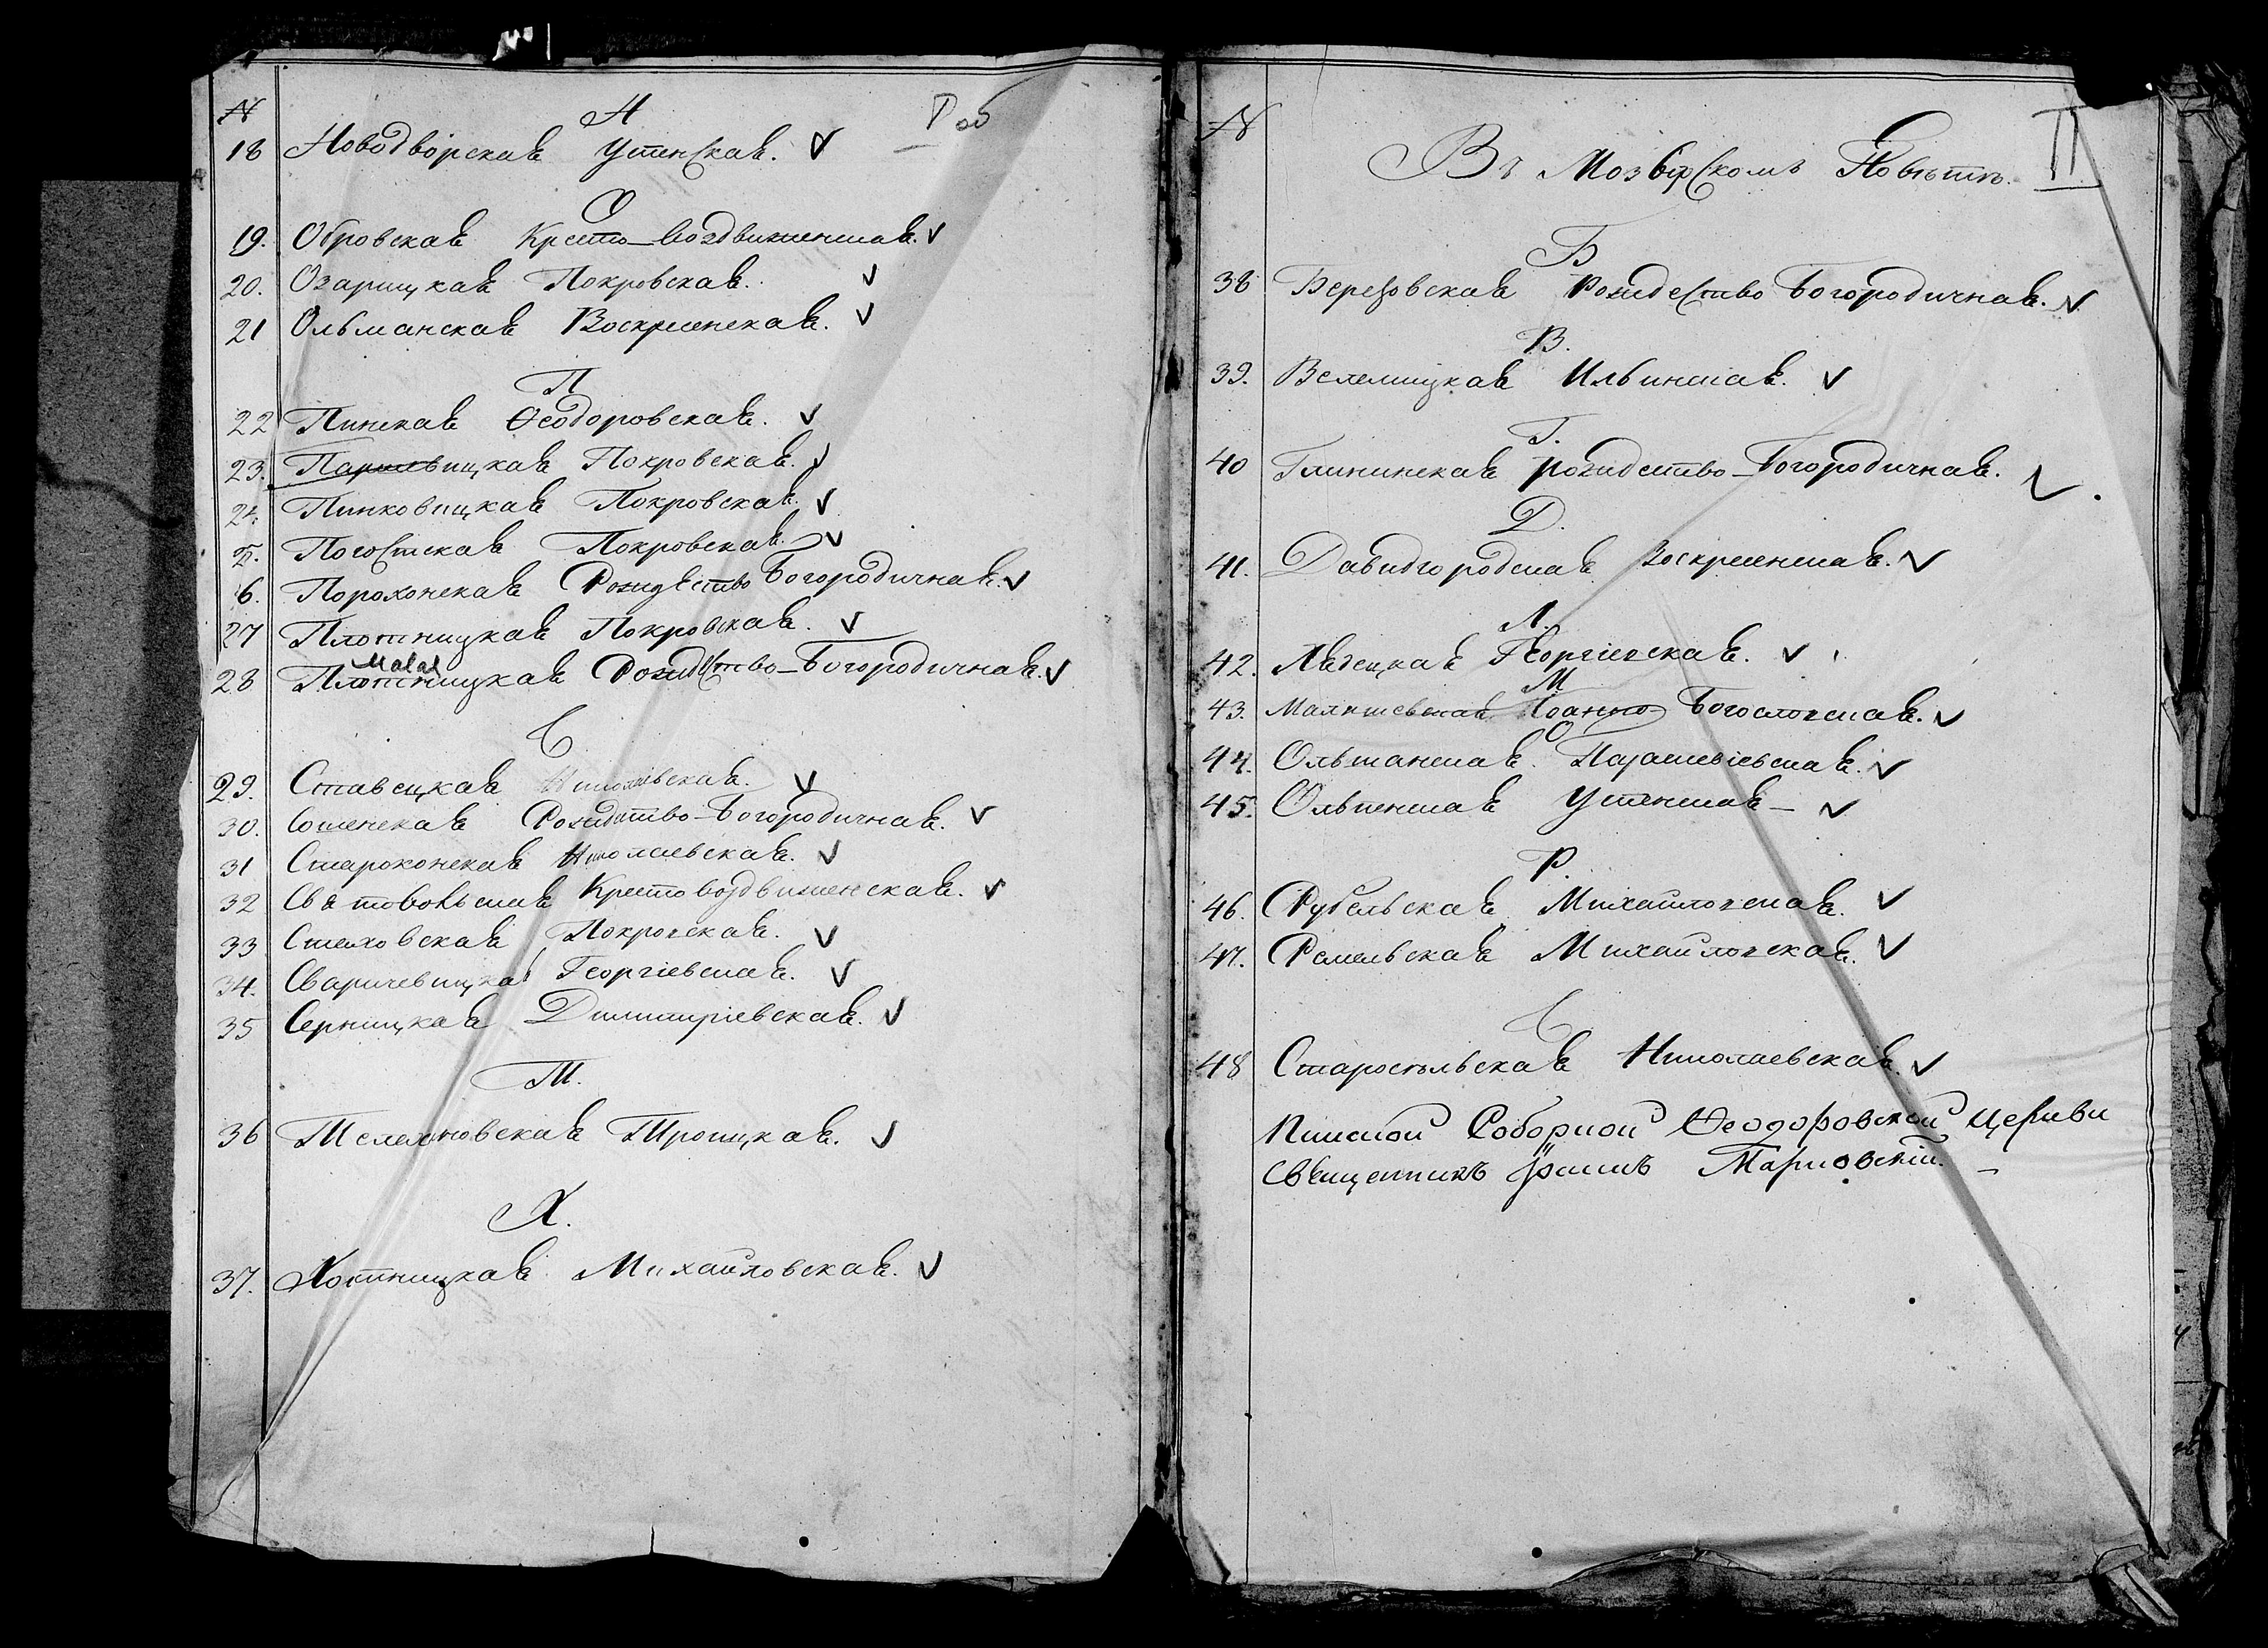 № Н I об
18 Новодворская Успенская. V
О
19. Обровская Кресто-Воздвиженская. V
20. Озарицкая Покровская. V
21 Ольманская Воскресенская. V
П
22 Пинская Ѳеодоровская. V
23. Паршевицкая Покровская. V
24. Пинковицкая Покровская. V
25. Погостская Покровская. V
6. Порохонская Рождество Богородичная. V
27 Плотницкая Покровская. V
Малая
28 Плотницкая Рождество-Богородичная. V
С
29. Ставецкая Николаевская. V
30. Сошенская Рождество-Богородичная. V
31 Староконская Николаевская. V
32 Святовольская Кресто Воздвиженская. V
33 Стаховская Покровская. V
34. Сваричевицкая Георгіевская. V
35 Серницкая Димитріевская. V
Т.
36 Телехановская Троицкая. V
Х.
37. Хотыницкая Михайловская. V
№ II
Въ Мозырскомъ Повѣтѣ.
Б
38 Березовская Рождество Богородичная. V
В.
39. Велемицкая Ильинская. V
Г.
40 Глининская Рождество-Богородичная. V
Д.
41. Давидгородская Воскресенская. V
Л.
42. Лядецкая Георгіевская. V
М
43. Маллишевская Іоанно Богословская. V
О
44. Ольшанская Параскевіевская. V
45. Ольпенская Успенская - V
Р.
46. Рубельская Михайловская. V
47. Ремельская Михайловская. V
С
48 Старосельская Николаевская. V
Пинской Соборной Ѳеодоровской Церкви
Священникъ Тарновскій. -